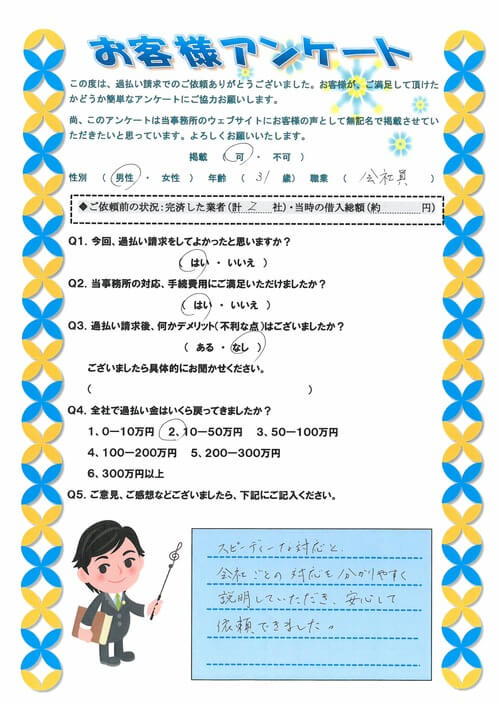 お客様アンケート
この度は、過払い請求でのご依頼ありがとうございました。お客様が、ご満足して頂けた
かどうか簡単なアンケートにご協力お願いします。
尚、このアンケートは当事務所のウェブサイトにお客様の声として無記名で掲載させてい
ただきたいと思っています。よろしくお願いいたします。
掲載 ( 可 ・ 不可 )
性別 ( 男性 ・ 女性 ) 年齢 ( 31 歳) 職業 ( 会社員 )
◆ご依頼前の状況:完済した業者(計 2 社)・当時の借入総額(約 円)
Q1. 今回、過払い請求をしてよかったと思いますか?
( はい ・ いいえ )
Q2. 当事務所の対応、手続費用にご満足いただけましたか?
( はい ・ いいえ )
Q3. 過払い請求後、何かデメリット(不利な点)はございましたか?
( ある ・ なし )
ございましたら具体的にお聞かせください。
( )
Q4. 全社で過払い金はいくら戻ってきましたか?
1、0ー10万円 2、10ー50万円 3、50ー100万円
4、100ー200万円 5、200ー300万円
6、300万円以上
Q5. ご意見、ご感想などございましたら、下記にご記入ください。
スピーディーな対応と、
会社ごとの対応を分かりやすく
説明していただき、安心して
依頼できました。